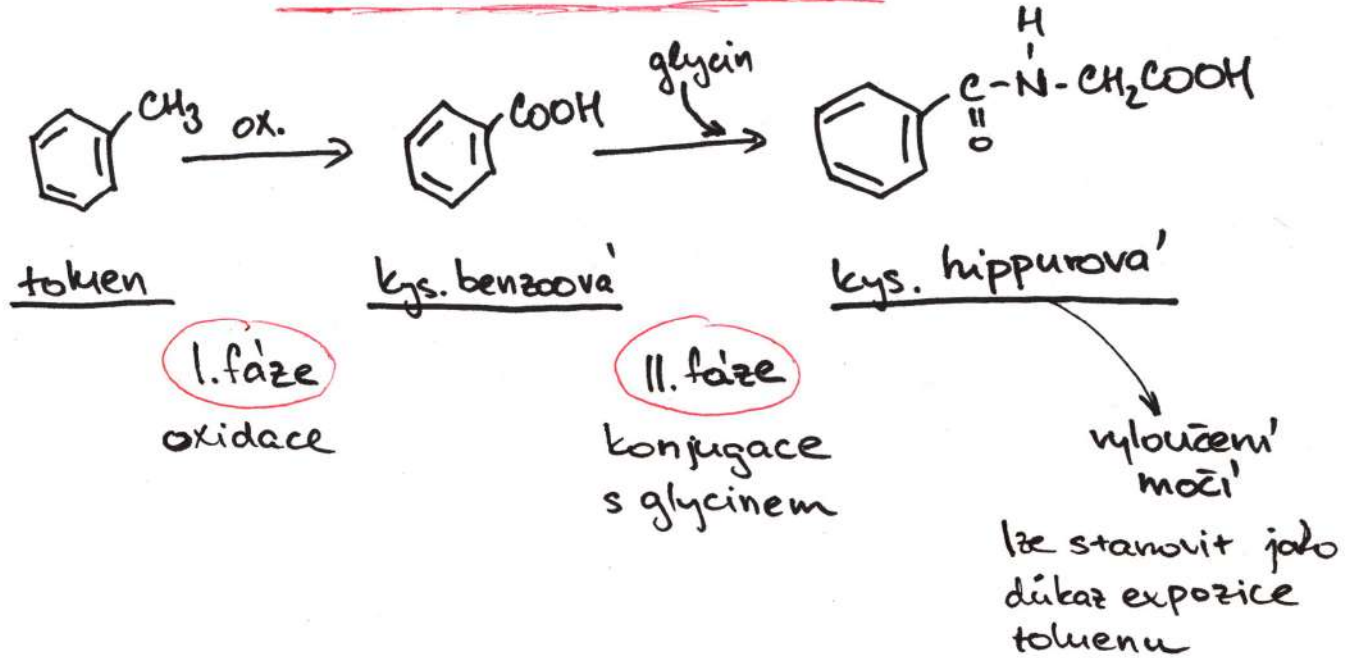 glycin
H
CH₃ ox. COOH C-N-CH₂COOH
O
toluen kys. benzoová kys. hippurová
I. fáze II. fáze
oxidace konjugace
s glycinem
vyloučení
močí
lze stanovit jako
důkaz expozice
toluenu